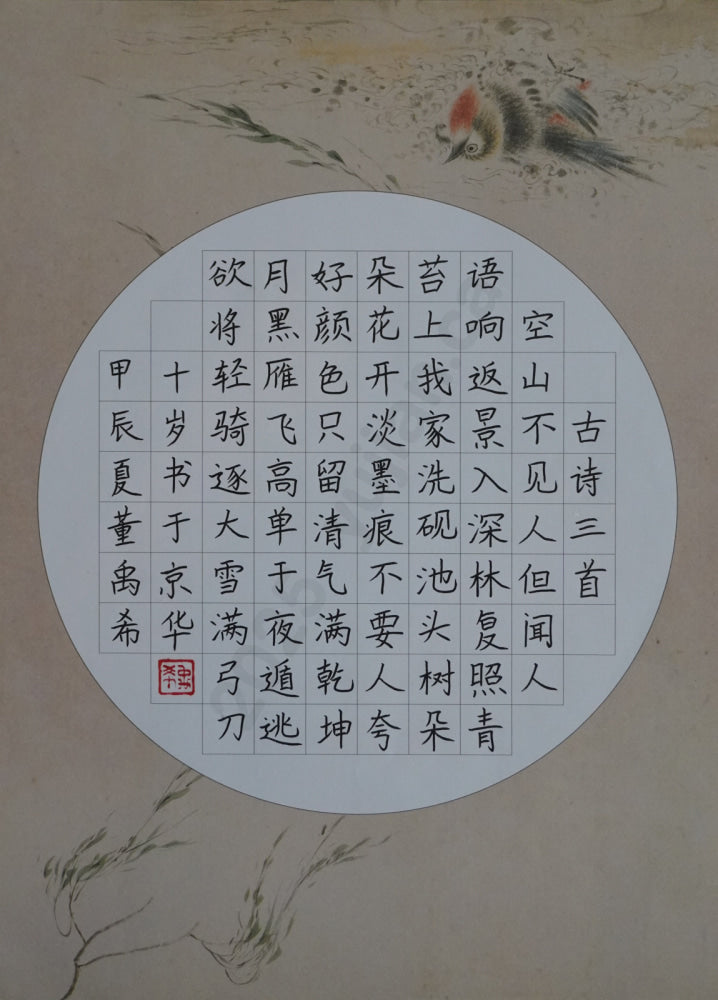 古诗三首
空山不见人但闻人
语响返景入深林复照青
苔上我家洗砚池头树朵
朵花开淡墨痕不要人夸
好颜色只留清气满乾坤
月黑雁飞高单于夜遁逃
欲将轻骑逐大雪满弓刀
十岁书于京华
甲辰夏董禹希